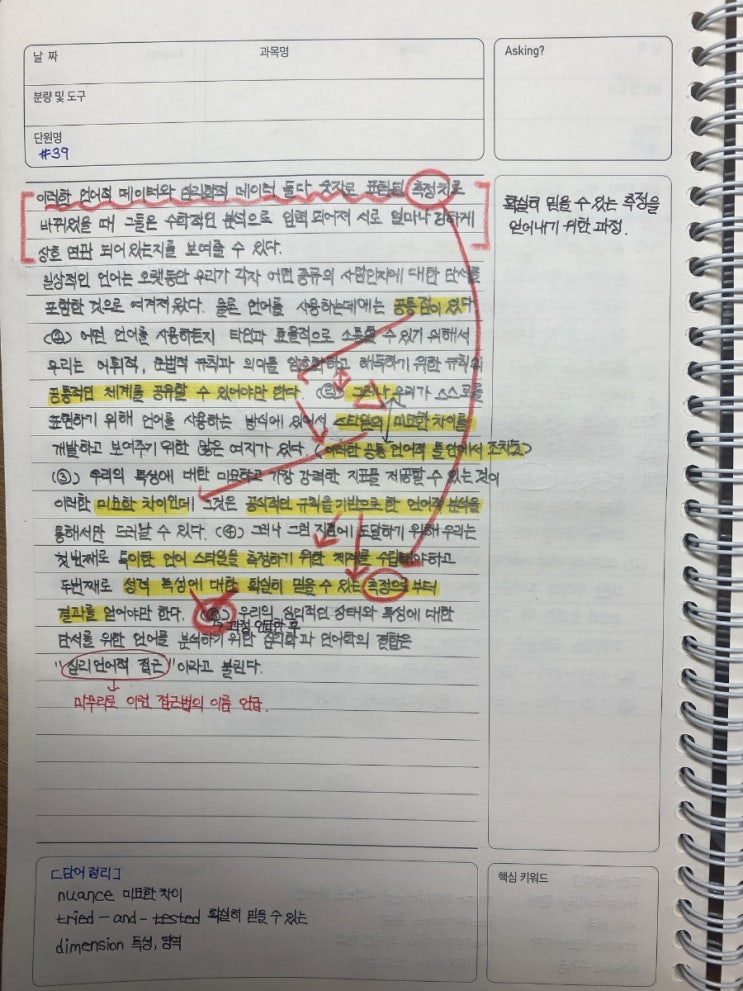 날 짜
과목명
Asking?
분량 및 도구
단원명
#39
이러한 언어적 데이터와 심리학적 데이터 둘다 숫자로 표현된 측정치로
바뀌었을 때 그들은 수학적인 분석으로 입력 되어져 서로 얼마나 강하게
상호 연관 되어 있는지를 보여줄 수 있다.
일상적인 언어는 오랫동안 우리가 각자 어떤 종류의 사람인지에 대한 단서를
포함한 것으로 여겨져 왔다. 물론 언어를 사용하는데에는 공통점이 있다
(①) 어떤 언어를 사용하든지 타인과 효율적으로 소통할 수 있기 위해서
우리는 어휘적, 문법적 규칙과 의미를 암호화하고 해독하기 위한 규칙의
공통적인 체계를 공유할 수 있어야만 한다. (②) 그러나 우리가 스스로를
표현하기 위해 언어를 사용하는 방식에 있어서 스타일의 미묘한 차이를
개발하고 보여주기 위한 많은 여지가 있다. (이러한 공통 언어적 틀 안에서 조차도)
(③) 우리의 특성에 대한 미묘하고 가장 강력한 지표를 제공할 수 있는 것이
이러한 미묘한 차이인데 그것은 공식적인 규칙을 기반으로 한 언어적 분석을
통해서만 드러날 수 있다. (④) 그러나 그런 지표에 도달하기 위해 우리는
첫번째로 특이한 언어 스타일을 측정하기 위한 체계를 수립해야하고
두번째로 성격 특성에 대한 확실히 믿을 수 있는 측정으로부터
결과를 얻어야만 한다. (⑤) 우리의 심리적인 상태와 특성에 대한
↳ 과정 언급한 후
단서를 위한 언어를 분석하기 위한 심리학과 언어학의 결합은
"심리언어적 접근"이라고 불린다.
마무리로 이런 접근법의 이름 언급.
확실히 믿을 수 있는 측정을
얻어내기 위한 과정.
[단어 정리]
nuance 미묘한 차이
tried-and-tested 확실히 믿을 수 있는
dimension 특성, 영역
핵심 키워드